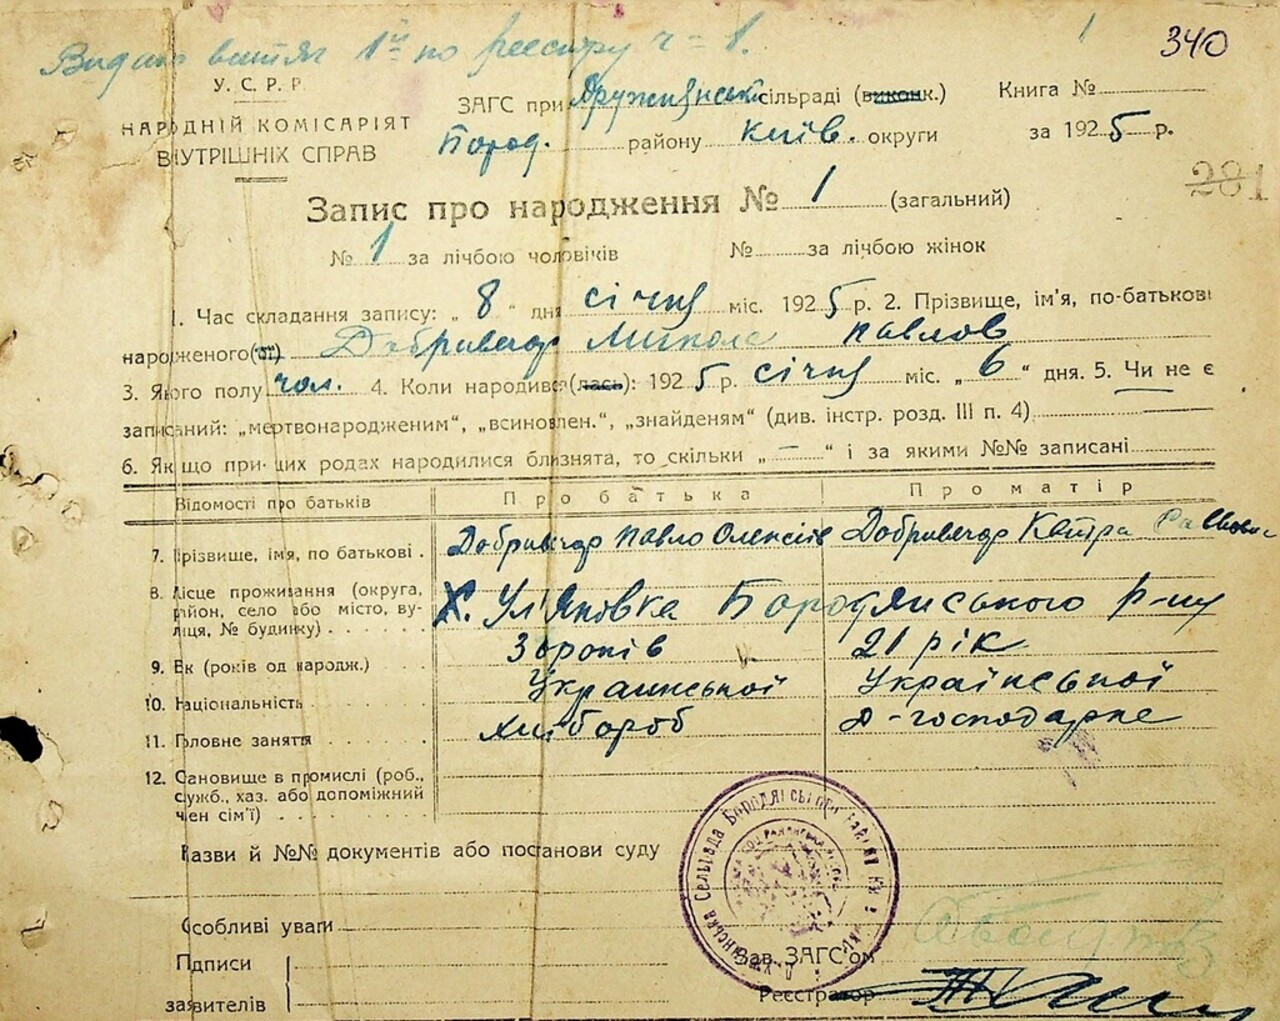 Видано витяг 1й по реєстру ч = 1.
340
У. С. Р. Р.
НАРОДНІЙ КОМІСАРІЯТ
ВНУТРІШНІХ СПРАВ
ЗАГС при Дружнянськ. сільраді (виконк.) Книга №
Бород. району Київ. округи за 1925 р.
281
Запис про народження № 1 (загальний)
№ 1 за лічбою чоловіків № за лічбою жінок
1. Час складання запису: „ 8 “ дня січня міс. 1925 р. 2. Прізвище, ім'я, по-батькові
народженого(ої) Добривечір Микола Павлов
3. Якого полу чол. 4. Коли народився(лась): 1925 р. січня міс. „ 6 “ дня. 5. Чи не є
записаний: „мертвонародженим“, „всиновлен.“, „знайденям“ (див. інстр. розд. III п. 4)
6. Якщо при цих родах народилися близнята, то скільки „ — “ і за якими №№ записані
Відомості про батьків Про батька Про матір
7. Прізвище, імя, по батькові . Добривечір Павло Олексіїв Добривечір
8. Місце проживання (округа, район, село або місто, вулиця, № будинку) Х. Ул'яновка Бородянського р-ну
9. Вк (років од народж.) років 21 рік
10. Національність Украинської Української
11. Головне заняття Хлібороб д-господарне
12. Становище в промислі (роб.,
служб., хаз. або допоміжний
член сім'ї)
Назви й №№ документів або постанови суду
Особливі уваги
Підписи
заявителів
Зав. ЗАГС'ом
Реєстратор